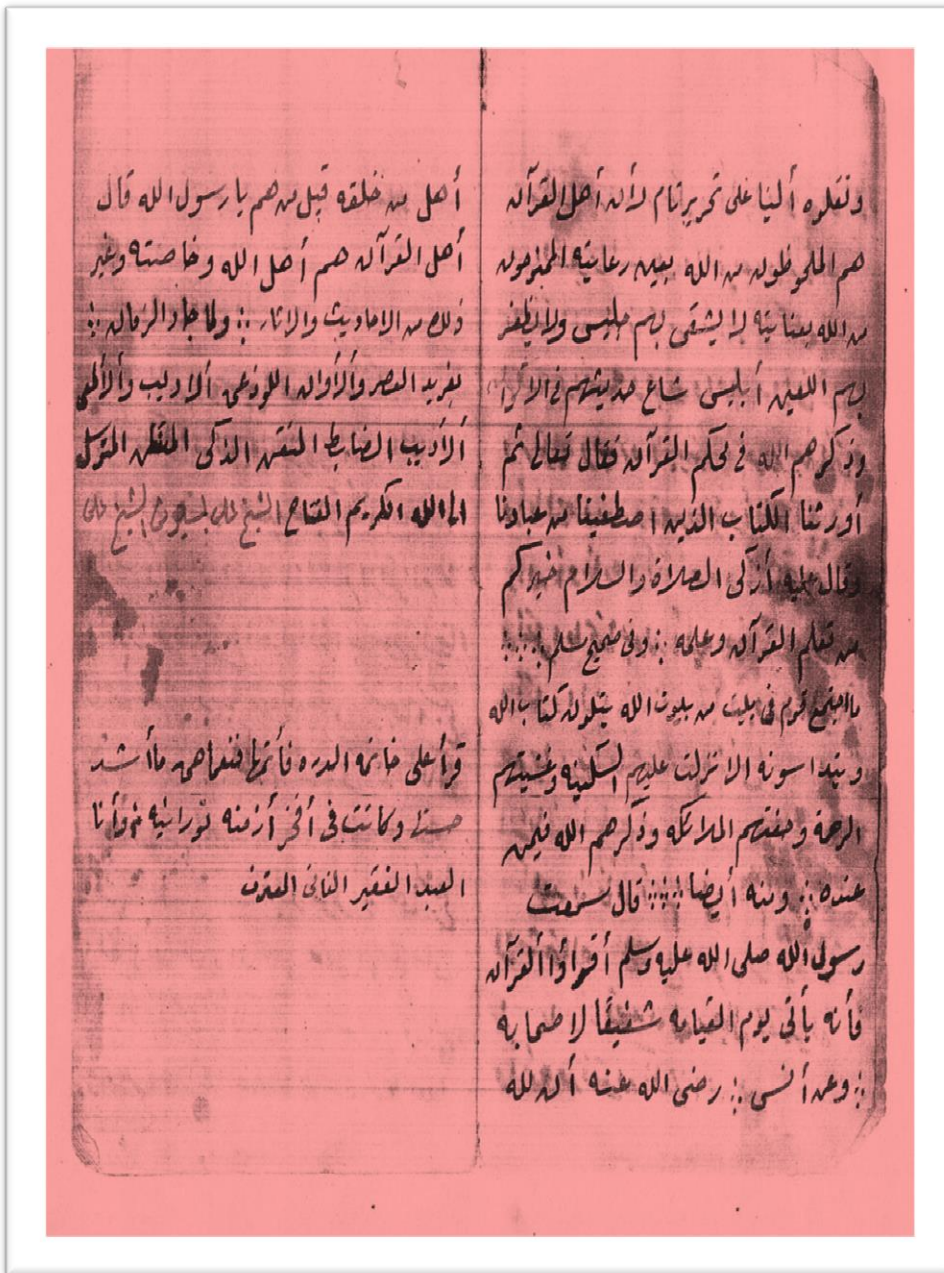 ونقلوه ألينا على تحرير تام لأن أهل القرآن
هم الملحوظون من الله بعين رعايته الممنوحون
من الله بعنايته لا يشقى بهم جليس ولا يظفر
بهم اللعين أبليس شاع حديثهم في
وذكرهم الله في محكم القرآن فقال تعالى ثم
أورثنا الكتاب الذين اصطفينا من عبادنا
وقال عليه أزكى الصلاة والسلام خيركم
من تعلم القرآن وعلمه ∴ وفى صحيح مسلم ∴
ما اجتمع قوم فى بيت من بيوت الله يتلون كتاب الله
ويتداسونه الا نزلت عليهم السكينه وغشيتهم
الرحمة وحفتهم الملائكه وذكرهم الله فيمن
عنده ∴ ومنه أيضا ∴∴ قال سمعت
رسول الله صلى الله عليه وسلم أقرؤا ألقرآن
فأنه يأتى يوم القيامه شفيعًا لاصحابه
∴ وعن أنس ∴ رضى الله عنه أن لله
أهل من خلقه قيل من هم يا رسول الله قال
أهل القرآن هم أهل الله وخاصته وغير
ذلك من الاحاديث والاثار ∴ ولما جاد الزمان ∴
بفريد العصر وألأوان اللوذعى ألاديب وألألمعى
ألأديب الضابط المتقن الذكى المتوكل
الى الله الكريم الفتاح الشيخ الشيخ
قرأ على خاتمه الدره فأتمها فنعما هى ماأ شد
وكانت فى أفخر أزمنه نورانيه ∴ وأنا
العبد الفقير الفانى المعترف